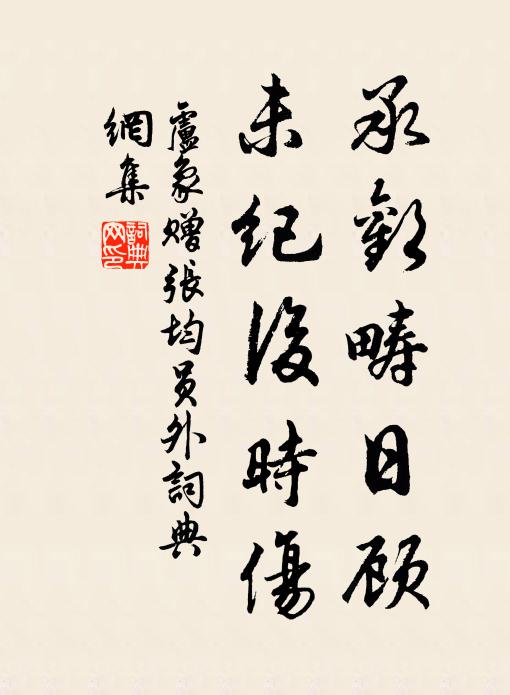 承歡畴日顾
未纪後時傷
盧象赠張均員外詞典
網集
詞典網印